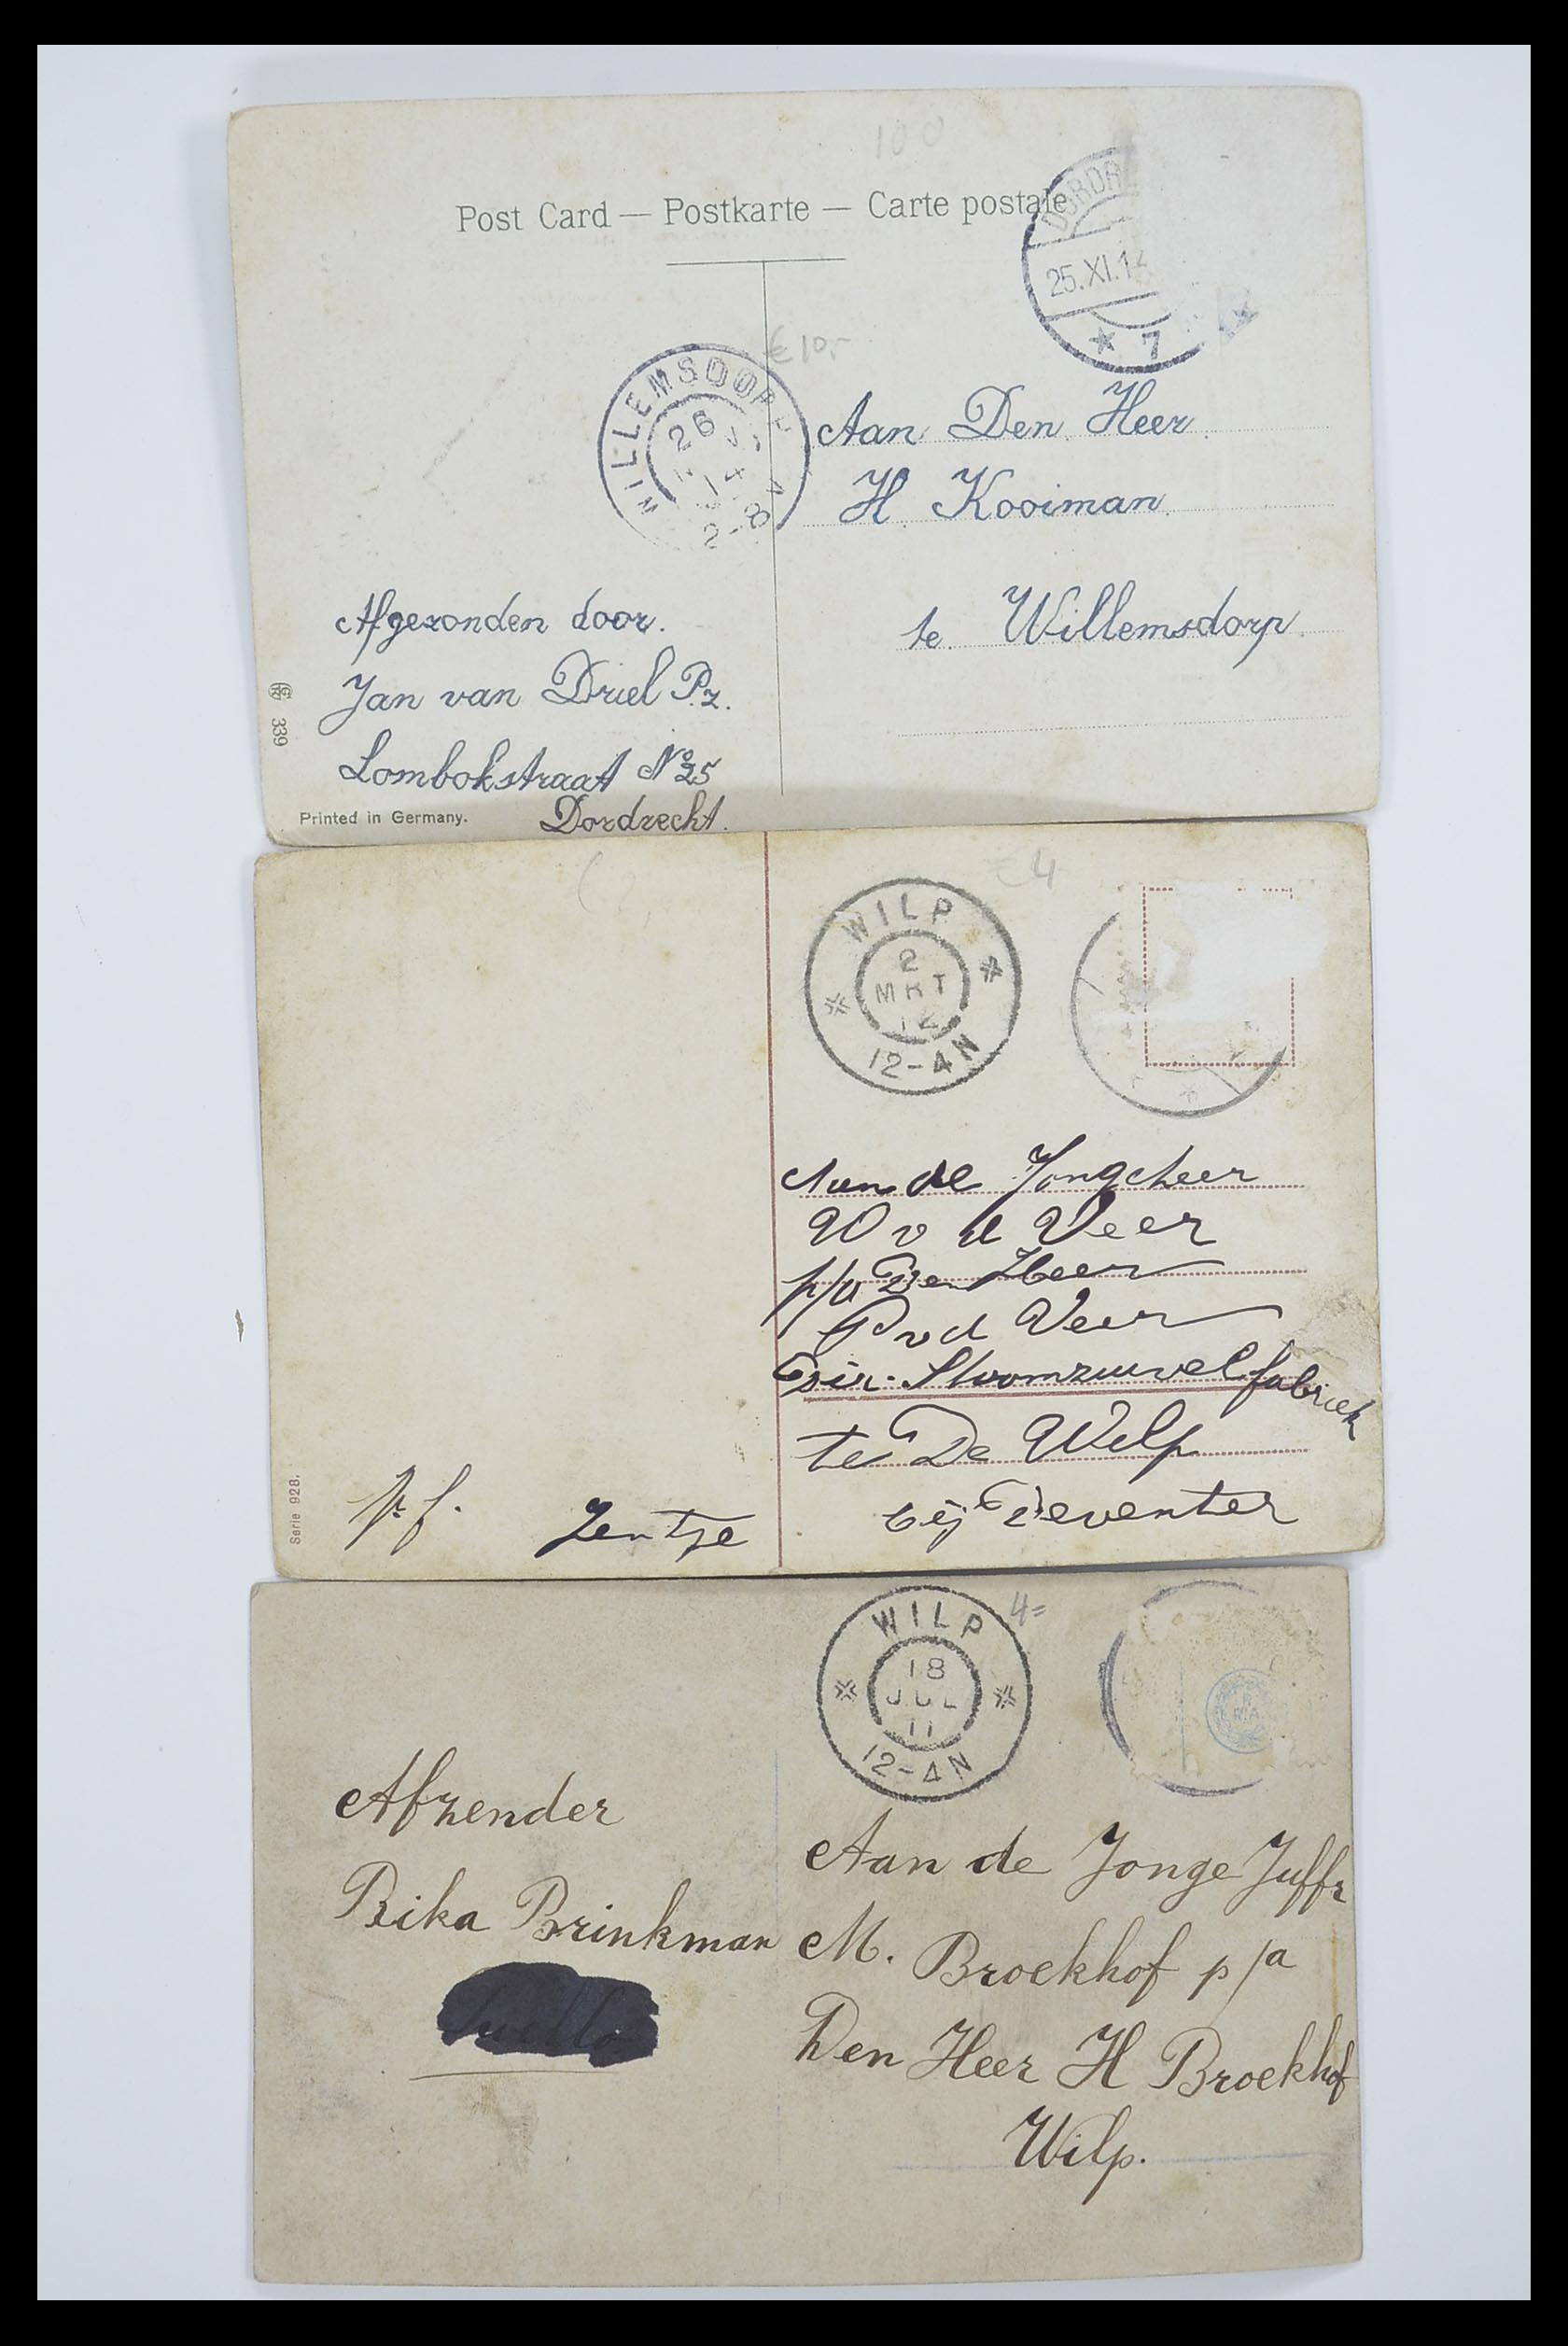 100
Post Card — Postkarte — Carte postale
DORDR
25.XI.14
* 7
€10,-
WILLEMSDORP
26
2-8
Aan Den Heer
H. Kooiman
te Willemsdorp.
Afgezonden door.
Jan van Driel P.z.
Lombokstraat No 25
Dordrecht.
339
Printed in Germany.
€4
WILP
2
MRT
12
12-4N
Aan de Jongeheer
W v d Veer
p/a Den Heer
P v d Veer
Dir. Stoomzuivelfabriek
te De Wilp
bij Deventer
p. f. Jentje
Serie 928.
4=
WILP
18
JUL
11
12-4N
Afzender
Rika Brinkman
Aan de Jonge Juffr
M. Broekhof p/a
Den Heer H Broekhof
Wilp.